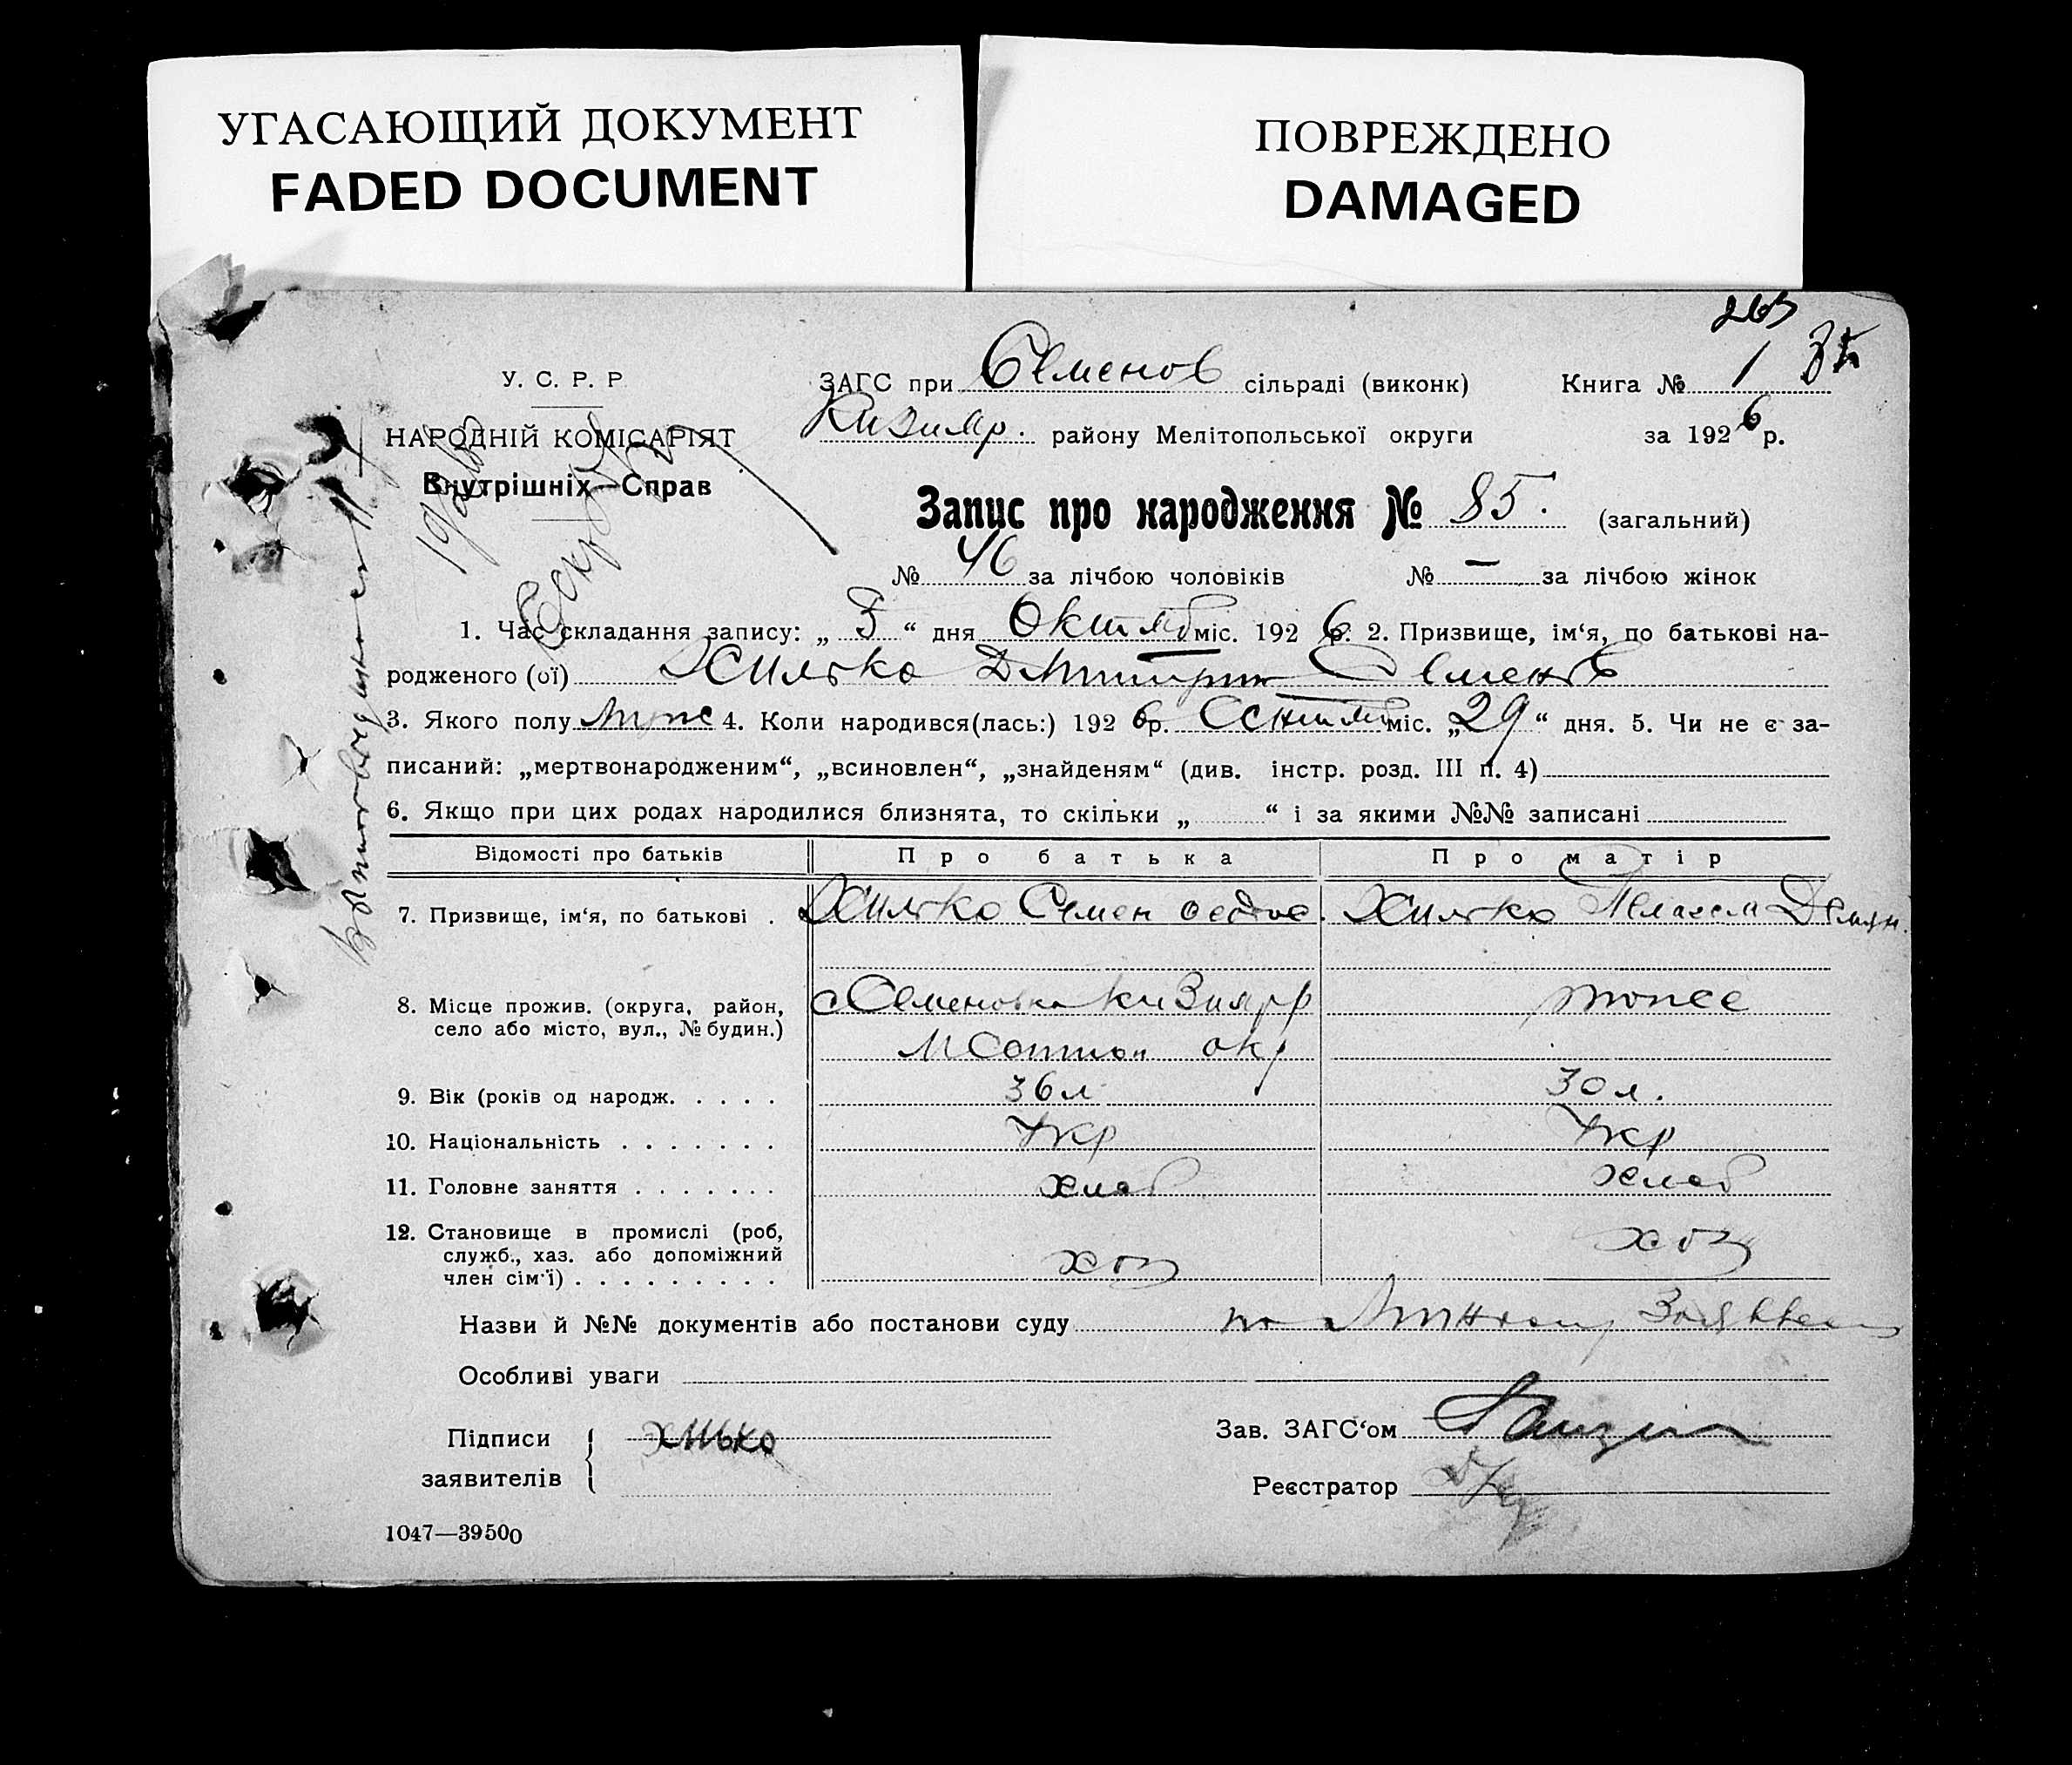 УГАСАЮЩИЙ ДОКУМЕНТ
FADED DOCUMENT
ПОВРЕЖДЕНО
DAMAGED
У. С. Р. Р.
НАРОДНІЙ КОМІСАРІЯТ
Внутрішніх Справ
ЗАГС при Семенов сільраді (виконк) Книга № 1
Кизияр. району Мелітопольської округи за 1926 р.
Запис про народження № 85. (загальний)
№ 46 за лічбою чоловіків № — за лічбою жінок
1. Час складання запису: „ 3 “ дня Октяб міс. 1926 р. 2. Призвище, ім‘я, по батькові на-
родженого (ої) Хилько Дмитрий Семенов
3. Якого полу муж 4. Коли народився(лась:) 1926 р. Сентяб міс. „ 29 “ дня. 5. Чи не є за-
писаний: „мертвонародженим“, „всиновлен“, „знайденям“ (див. інстр. розд. III п. 4)
6. Якщо при цих родах народилися близнята, то скільки „ “ і за якими №№ записані
Відомості про батьків Про батька Про матір
7. Призвище, ім‘я, по батькові . Хилько Семен Федов. Хилько Пелагея Демян.
8. Місце прожив. (округа, район, село або місто, вул., № будин.) с Семеновка Кизияр р тоже
окр
9. Вік (років од народж. . . . . 36 л 30 л.
10. Національність . . . . . . . Укр Укр
11. Головне заняття . . . . . . . хлеб хлеб
12. Становище в промислі (роб, служб., хаз. або допоміжний член сім‘ї) . . . . . . . . . хоз хоз
Назви й №№ документів або постанови суду по личному
Особливі уваги
Підписи заявителів Хилько
Зав. ЗАГС‘ом
Реєстратор
1047—39500